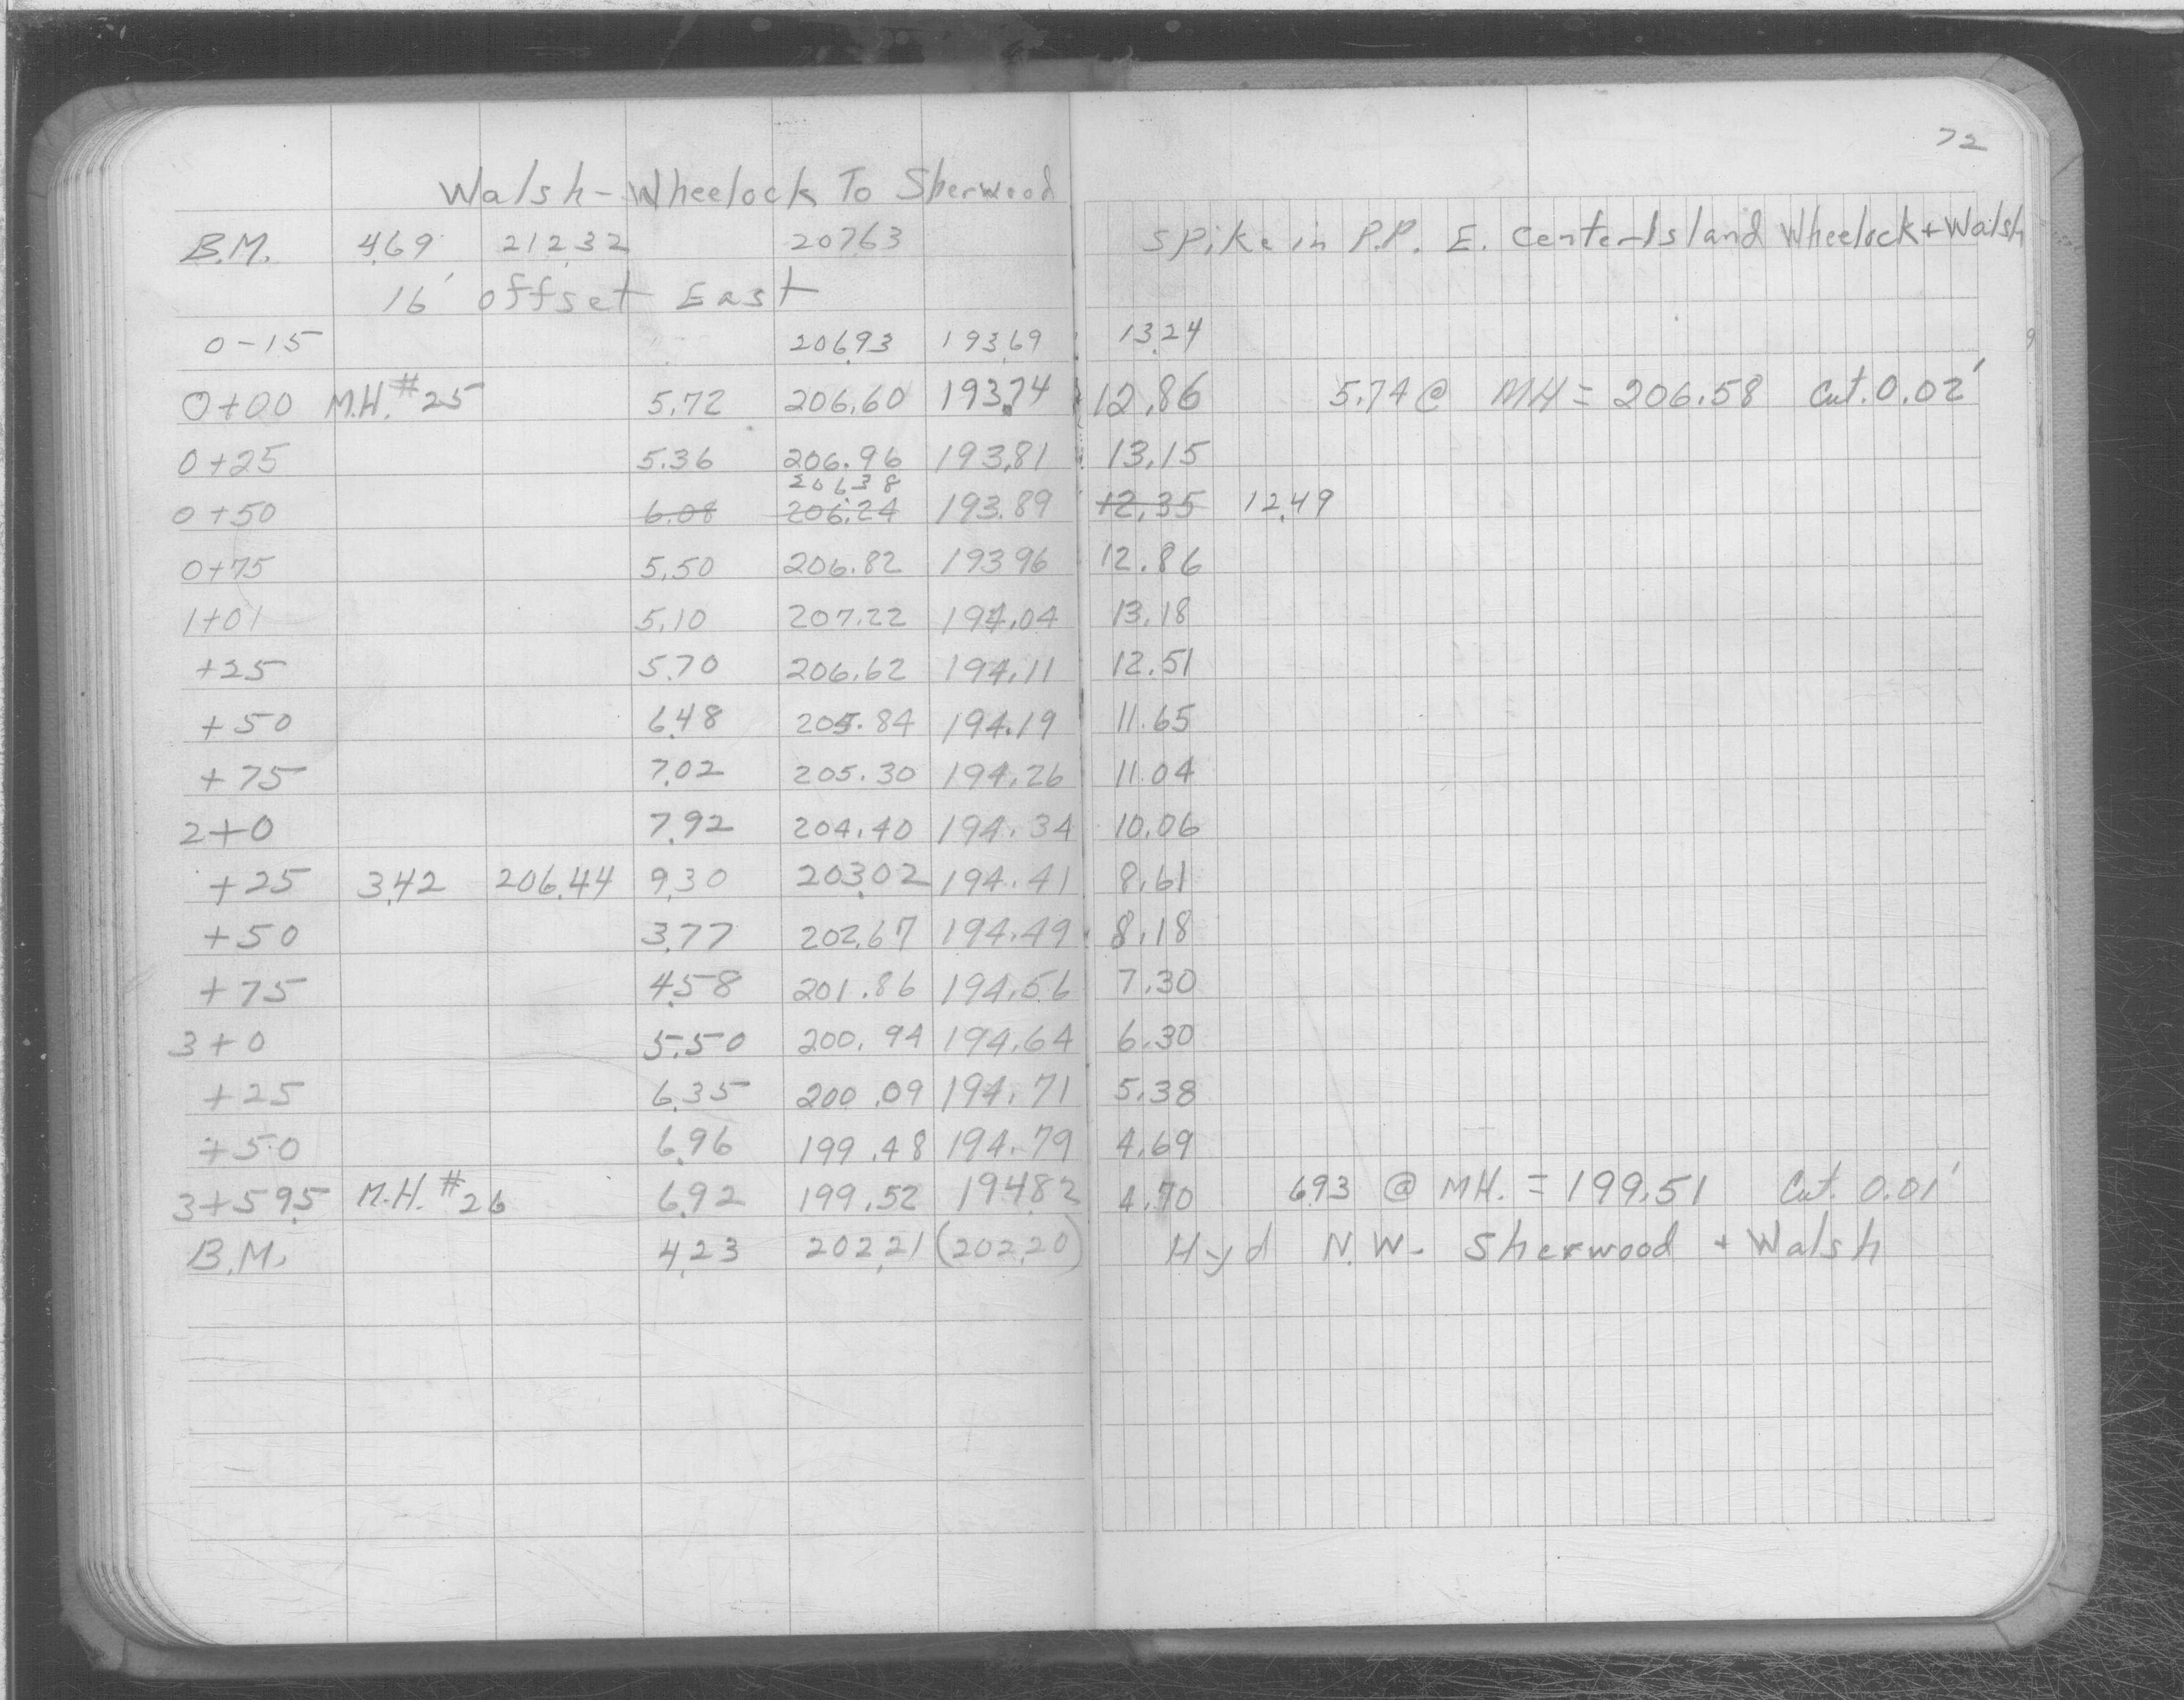 72
Walsh-Wheelock To Sherwood
B.M. 4.69 212.32 207.63 Spike in P.P. E. Center Island Wheelock + Walsh
16' offset East
0-15 206.93 193.69 13.24
0+00 M.H. #25 5.72 206.60 193.74 12.86 5.74 @ MH = 206.58 Cut. 0.02'
0+25 5.36 206.96 193.81 13.15
206.38
0+50 6.08 206.24 193.89 12.35 12.49
0+75 5.50 206.82 193.96 12.86
1+01 5.10 207.22 194.04 13.18
+25 5.70 206.62 194.11 12.51
+50 6.48 205.84 194.19 11.65
+75 7.02 205.30 194.26 11.04
2+0 7.92 204.40 194.34 10.06
+25 3.42 206.44 9.30 203.02 194.41 8.61
+50 3.77 202.67 194.49 8.18
+75 4.58 201.86 194.56 7.30
3+0 5.50 200.94 194.64 6.30
+25 6.35 200.09 194.71 5.38
+50 6.96 199.48 194.79 4.69
3+59.5 M.H. #26 6.92 199.52 194.82 4.70 6.93 @ MH. = 199.51 Cut. 0.01'
B.M. 4.23 202.21 (202.20) Hyd N.W. Sherwood + Walsh